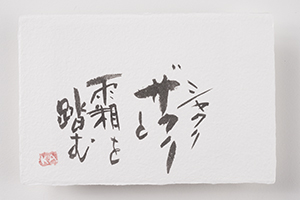 シャクリ
ザクリと
霜を
踏む